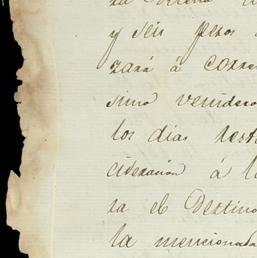 y seis pesos
zará á corre
simo venidero
los dias rest
cideracion á l
sa el Destino
la mencionada